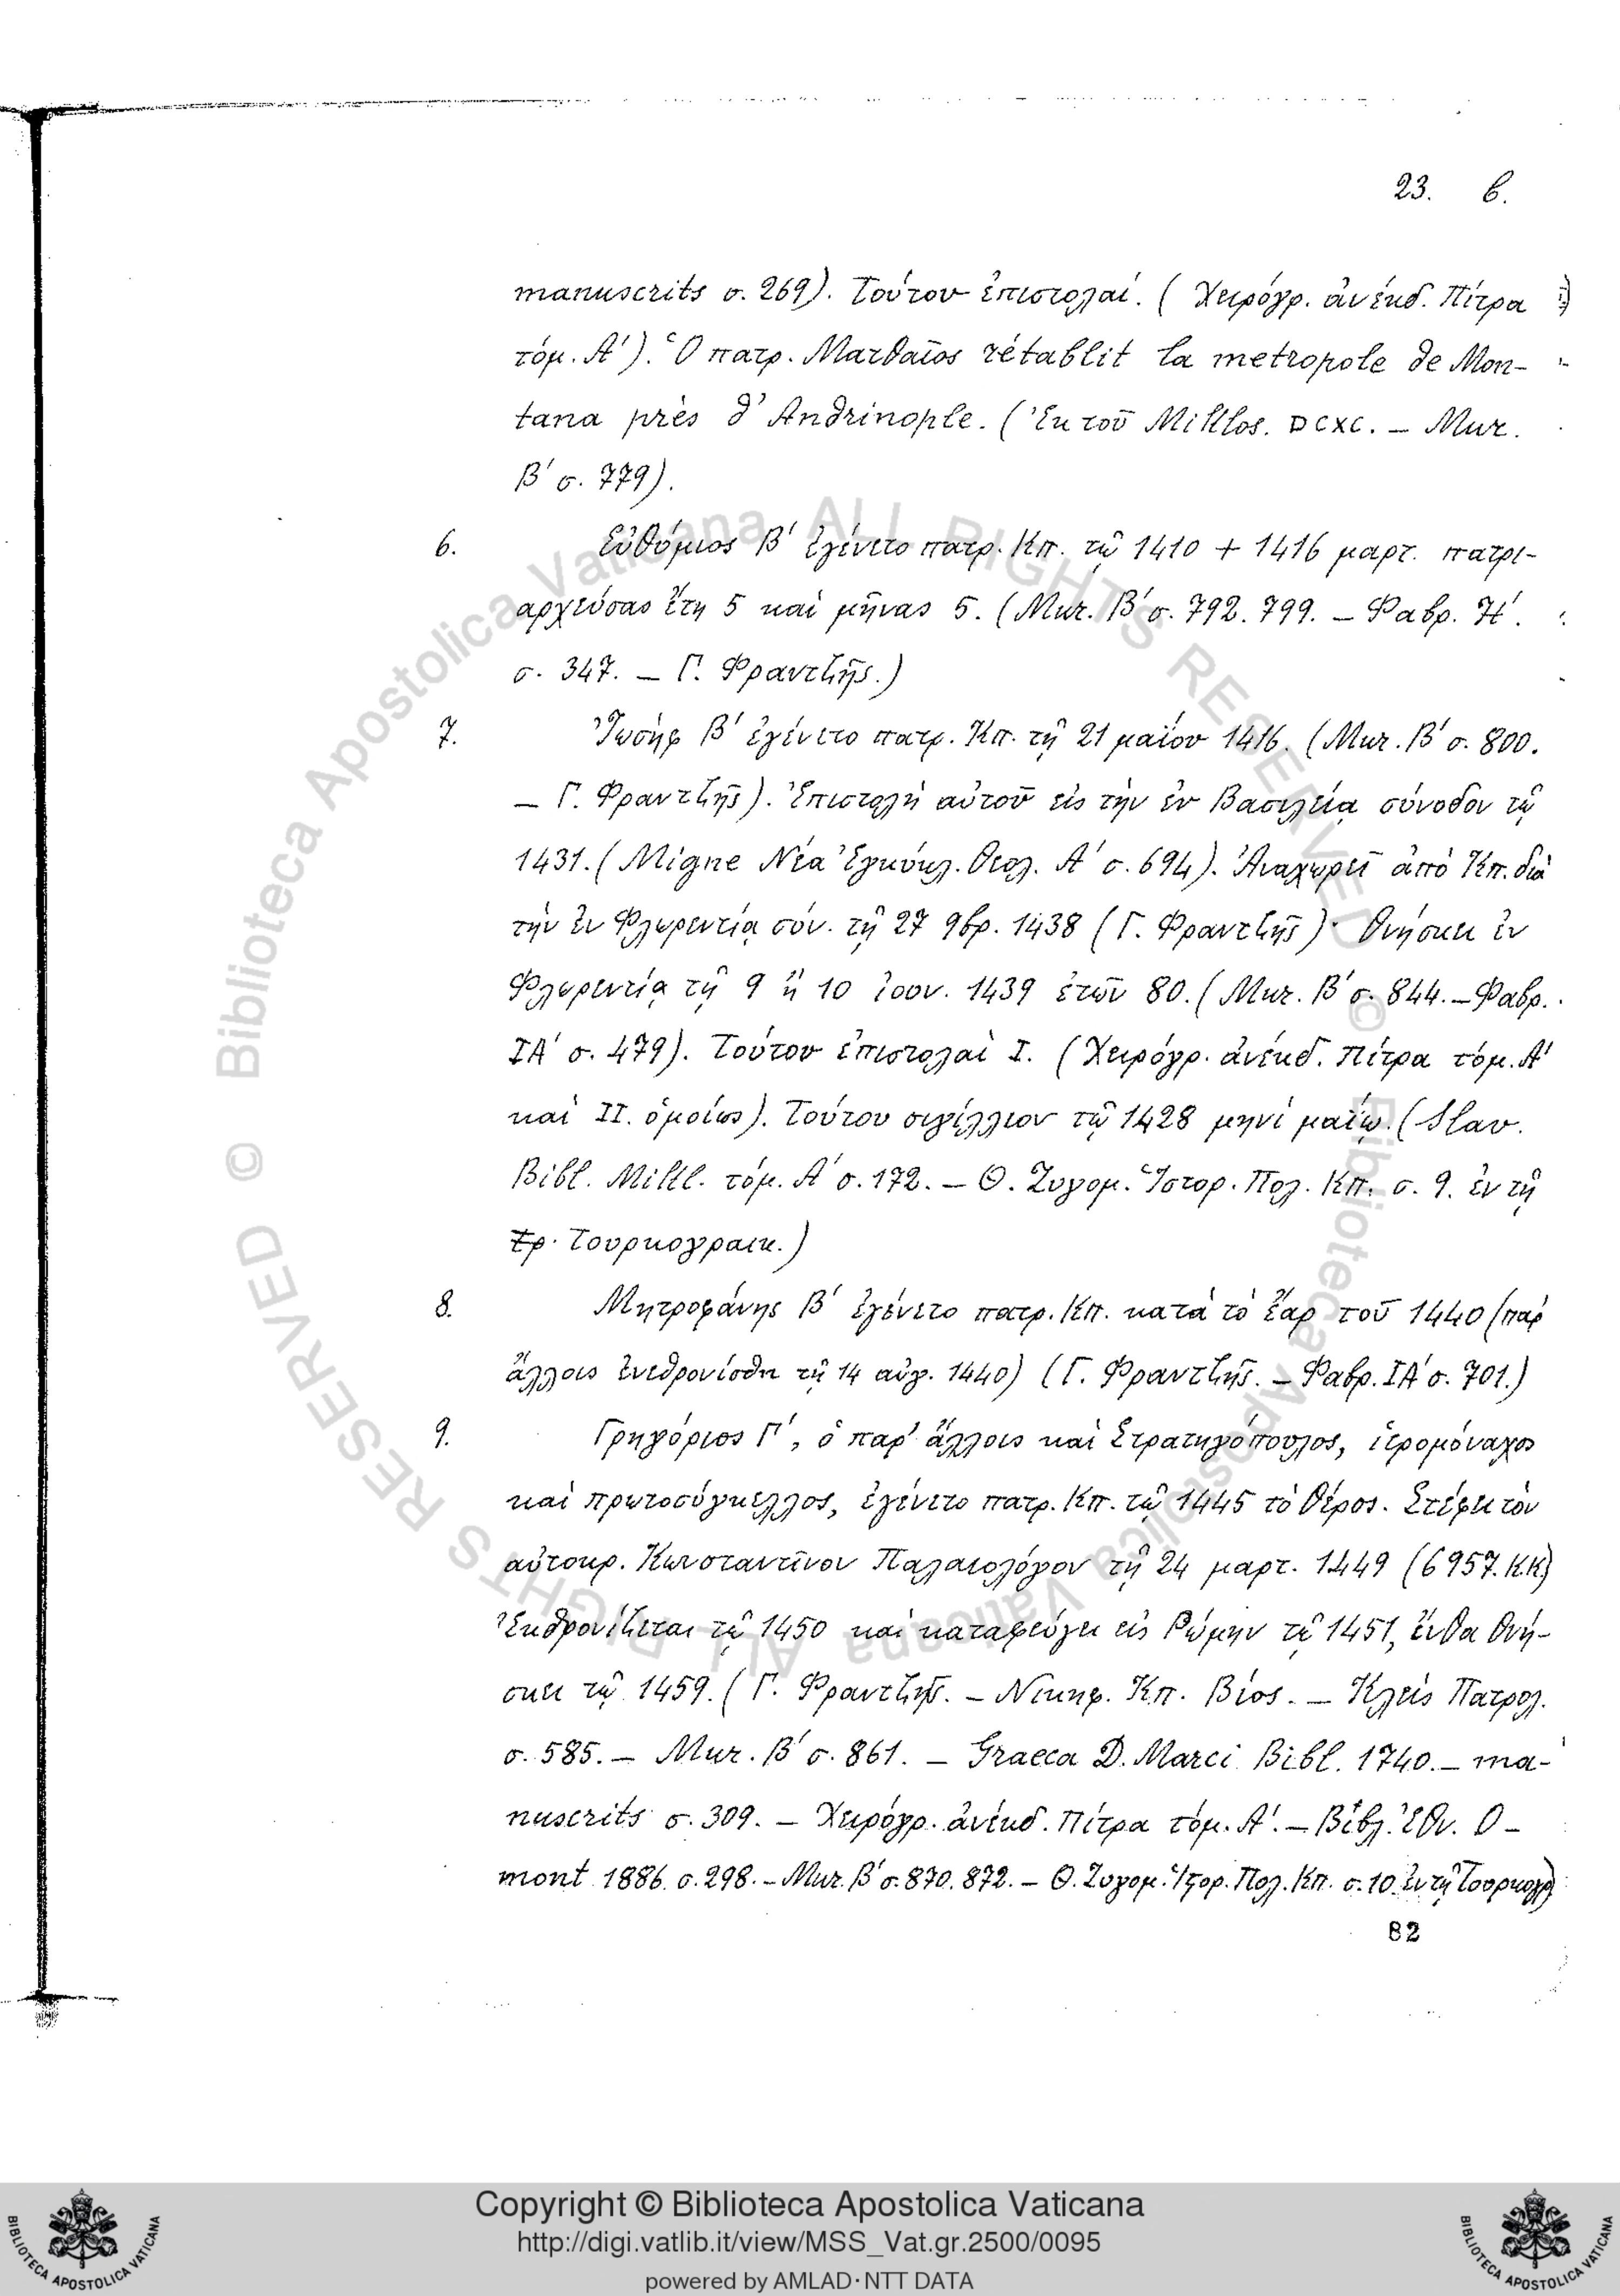 23. β.
manuscrits σ. 269). Τούτου ἐπιστολαί. ( Χειρόγρ. ἀνέκδ. Πίτρα
τόμ. Α΄). Ὁ πατρ. Ματθαῖος rétablit la metropole de Mon-
tana près d' Andrinople. (Ἐκ τοῦ Miklos. DCXC. – Mur.
Β΄ σ. 779).
6. Εὐθύμιος Β΄ ἐγένετο πατρ. Κπ. τῷ 1410 + 1416 μαρτ. πατρι-
αρχεύσας ἔτη 5 καὶ μῆνας 5. (Mur. Β΄ σ. 792. 799. – Φαβρ. Η΄.
σ. 347. – Γ. Φραντζῆς.)
7. Ἰωσὴφ Β΄ ἐγένετο πατρ. Κπ. τῇ 21 μαΐου 1416. (Mur. Β΄ σ. 800.
– Γ. Φραντζῆς). Ἐπιστολὴ αὐτοῦ εἰς τὴν ἐν Βασιλείᾳ σύνοδον τῷ
1431. (Migne Νέα Ἐγκύκλ. Θεολ. Α΄ σ. 694). Ἀναχωρεῖ ἀπὸ Κπ. διὰ
τὴν ἐν Φλωρεντίᾳ σύν. τῇ 27 9βρ. 1438 (Γ. Φραντζῆς)· Θνήσκει ἐν
Φλωρεντίᾳ τῇ 9 ἢ 10 ἰουν. 1439 ἐτῶν 80. (Mur. Β΄ σ. 844. – Φαβρ.
ΙΑ΄ σ. 479). Τούτου ἐπιστολαὶ Ι. (Χειρόγρ. ἀνέκδ. Πίτρα τόμ. Α΄
καὶ ΙΙ. ὁμοίως). Τούτου σιγίλλιον τῷ 1428 μηνὶ μαΐῳ. (Slav.
Bibl. Mikl. τόμ. Α΄ σ. 172. – Θ. Ζυγομ. Ἱστορ. Πολ. Κπ. σ. 9. ἐν τῇ
Τουρκογραικ.)
8. Μητροφάνης Β΄ ἐγένετο πατρ. Κπ. κατὰ τὸ ἔαρ τοῦ 1440 (παρ'
ἄλλοις ἐνεθρονίσθη τῇ 14 αὐγ. 1440) (Γ. Φραντζῆς. – Φαβρ. ΙΑ΄ σ. 701.)
9. Γρηγόριος Γ΄, ὁ παρ' ἄλλοις καὶ Στρατηγόπουλος, ἱερομόναχος
καὶ πρωτοσύγκελλος, ἐγένετο πατρ. Κπ. τῷ 1445 τὸ θέρος. Στέφει τὸν
αὐτοκρ. Κωνσταντῖνον Παλαιολόγον τῇ 24 μαρτ. 1449 (6957. Κ.Κ.)
Ἐκθρονίζεται τῷ 1450 καὶ καταφεύγει εἰς Ρώμην τῷ 1451, ἔνθα θνή-
σκει τῷ 1459. (Γ. Φραντζῆς. – Νικηφ. Κπ. Βίος. – Κλεὶς Πατρολ.
σ. 585. – Mur. Β΄ σ. 861. – Graeca D. Marci Bibl. 1740. – ma-
nuscrits σ. 309. – Χειρόγρ. ἀνέκδ. Πίτρα τόμ. Α΄. – Βιβλ. Ἐθν. O-
mont 1886. σ. 298. – Mur. Β΄ σ. 870. 872. – Θ. Ζυγομ. Ἱστορ. Πολ. Κπ. σ. 10 ἐν τῇ Τουρκογρ)
82
© Biblioteca Apostolica Vaticana ALL RIGHTS RESERVED
© Biblioteca Apostolica Vaticana ALL RIGHTS RESERVED
Copyright © Biblioteca Apostolica Vaticana
http://digi.vatlib.it/view/MSS_Vat.gr.2500/0095
powered by AMLAD·NTT DATA
BIBLIOTECA APOSTOLICA VATICANA
BIBLIOTECA APOSTOLICA VATICANA